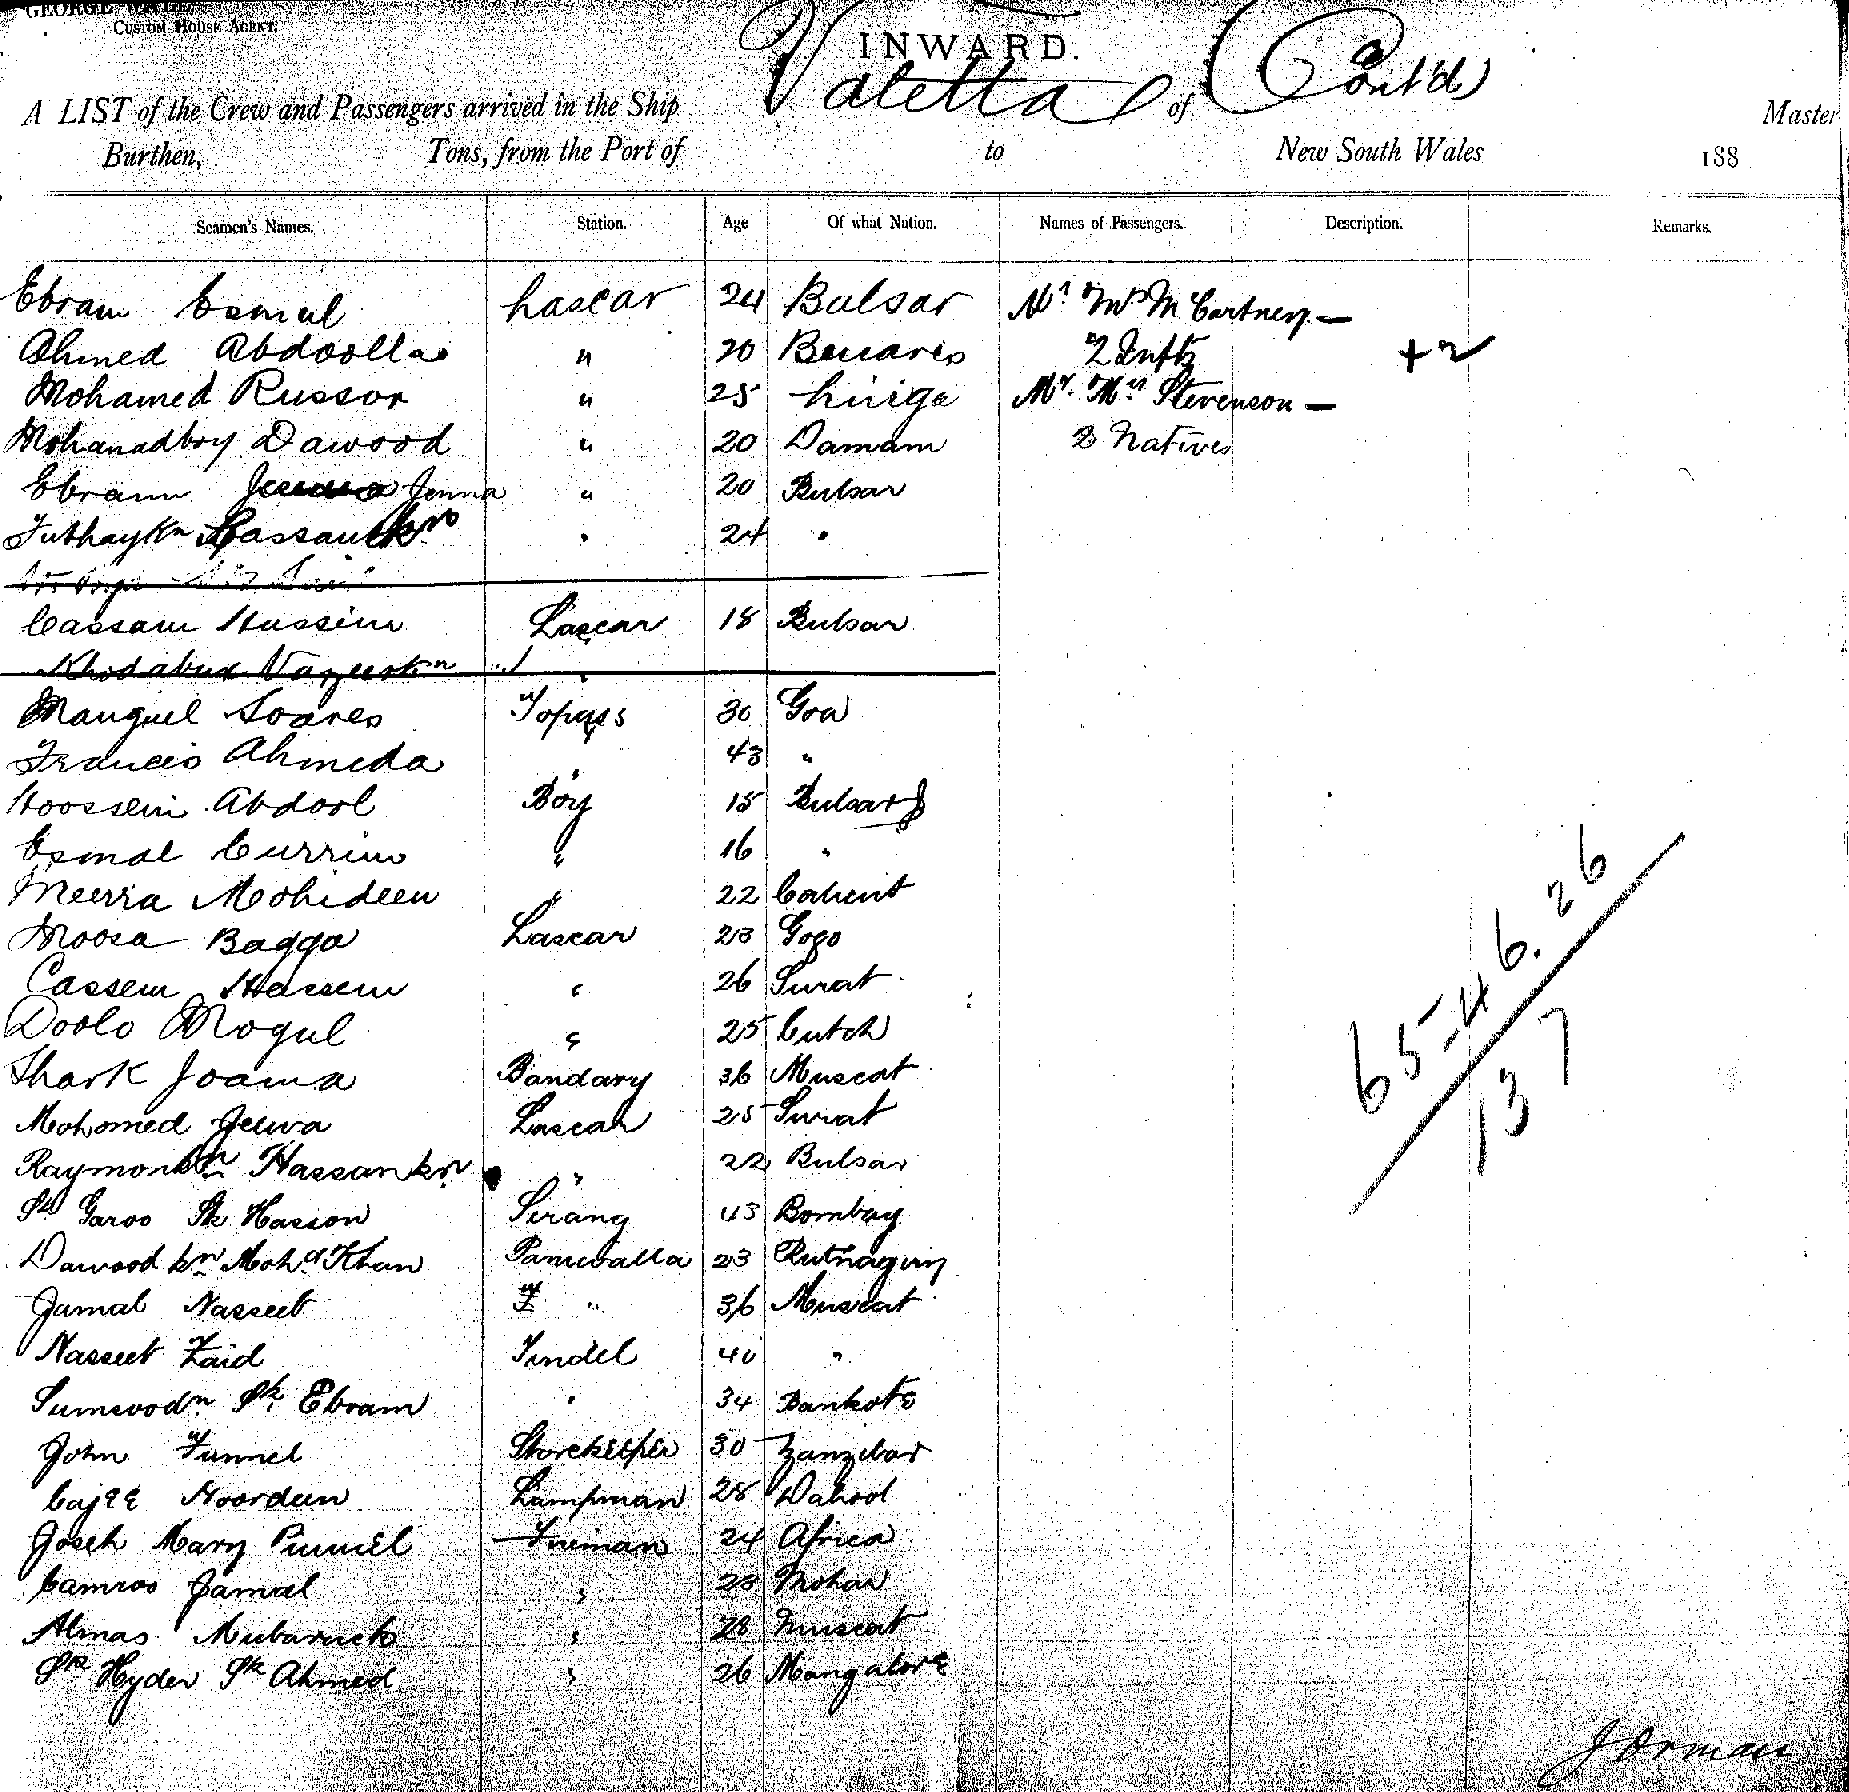 CUSTOM HOUSE AGENT.
INWARD.
A LIST of the Crew and Passengers arrived in the Ship Valetta of (Cont'd) Master
Burthen, Tons, from the Port of to New South Wales 188
Seamen's Names. Station. Age Of what Nation. Names of Passengers. Description. Remarks.
Ebram Esmul Lascar 24 Bulsar Mr Mrs McCartney —
Ahmed Abdoolla " 20 Benares 2 Infts + 2
Mohamed Russor " 25 Mr. Mrs Stevenson —
Mohamadboy Dawood " 20 Damam 2 Natives
Ebram Jenna " 20 Bulsar
" 24 "
Cassam Hussein Lascar 18 Bulsar
Manguel Soares Topass 30 Goa
Francis Ahmeda " 43 "
Hoossein Abdool Boy 15 Bulsar
Esmal Currim " 16 "
Meerza Mohideen " 22 Calicut
Moosa Bagga Lascar 23 Gogo
Cassem Hassem " 26 Surat
Doolo Mogul " 25 Cutch
Joama Bandary 36 Muscat
Mohomed Jeewa Lascar 25 Surat
Hassan kn " 22 Bulsar
Sk Garoo Sk Hasson Serang 43 Bombay
Dawood kn Mohd Khan Paniwalla 23 Rutnagiry
Jumal Nasseeb " 36 Muscat
Nasseeb Zaid Tindel 40 "
Sumsoodn Sk Ebram " 34 Bankote
John Funnel Storekeeper 30 Zanzibar
Cajee Noordeen Lampman 28 Dabool
Joseh Mary Fireman 24 Africa
Camroo Jamal " 23
Almas Mubaruck " 28 Muscat
Sk Hyder Sk Ahmed " 26 Mangalore
65-46. 26
137